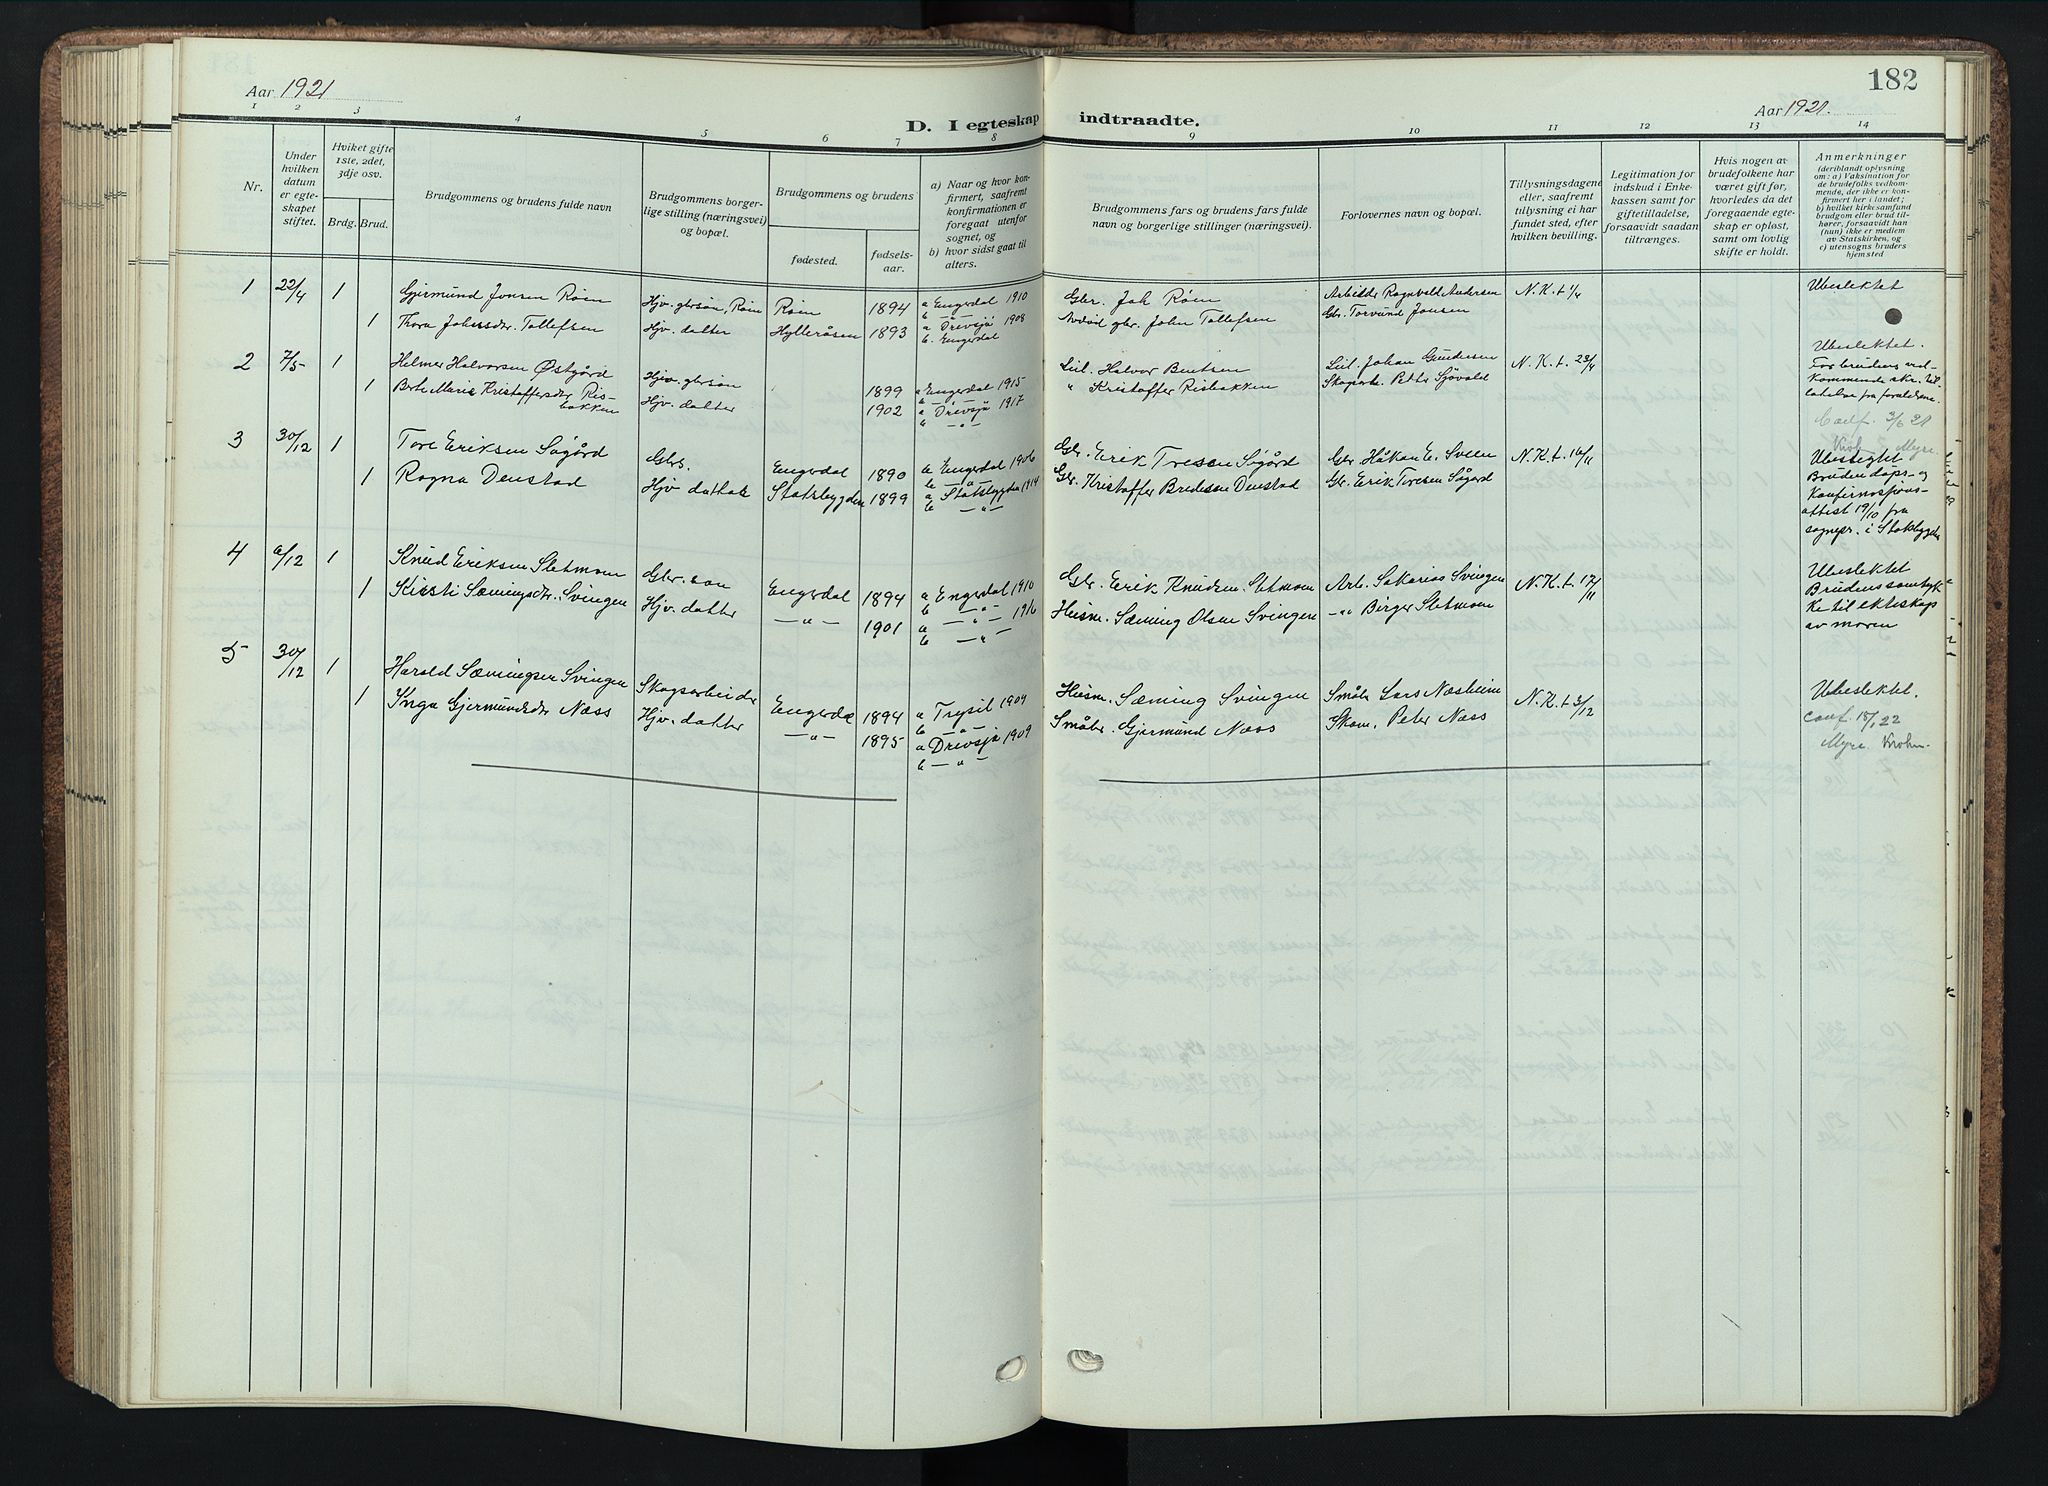 182
Aar 1921
Aar 1921.
D. I egteskap indtraadte.
1 2 3 4 5 6 7 8 9 10 11 12 13 14
Nr.
Under hvilken datum er egteskapet stiftet.
Hviket gifte 1ste, 2det, 3dje osv.
Brdg. Brud.
Brudgommens og brudens fulde navn
Brudgommens borgerlige stilling (næringsvei) og bopæl.
Brudgommens og brudens
fødested.
fødselsaar.
a) Naar og hvor konfirmert, saafremt konfirmationen er foregaat utenfor sognet, og
b) hvor sidst gaat til alters.
Brudgommens fars og brudens fars fulde navn og borgerlige stillinger (næringsvei).
Forlovernes navn og bopæl.
Tillysningsdagene eller, saafremt tillysning ei har fundet sted, efter hvilken bevilling.
Legitimation for indskud i Enkekassen samt for giftetilladelse, forsaavidt saadan tiltrænges.
Hvis nogen av brudefolkene har været gift før, hvorledes da det foregaaende egteskap er opløst, samt om lovlig skifte er holdt.
Anmerkninger (deriblandt oplysning om: a) Vaksination for de brudefolks vedkommende, der ikke er konfirmert her i landet; b) hvilket kirkesamfund brudgom eller brud tilhører, forsaavidt han (hun) ikke er medlem av Statskirken, og c) utensogns bruders hjemsted
1 22/4 1 Gjermund Jonsen Røen Hjv. gbrsøn, Røen Røen 1894 a Engerdal 1910 b -"- Gbr. Joh Røen Arbeider Ragnvald Andersen N.K.t 1/4 Ubeslektet
1 Thora Johnsdr. Tollefsen Hjv. datter Hylleråsen 1893 a Drevsjø 1908 b. Engerdal Avdød gbr. John Tollefsen Gbr. Torvund Jonsen
2 7/5 1 Helmer Halvorsen Østgård Hjv. gbrsøn 1899 a Engerdal 1915 b -"- Leil. Halvor Bentsen Leil. Johan Gundersen N.K.t 23/4 Ubeslektet.
1 Berte Marie Kristoffersdr Risbakken Hjv. datter 1902 a Drevsjø 1917 b -"- " Kristoffer Risbakken Petts Sjøvold For brudens vedkommende skr. tilladelse fra forældrene.
Conf. 3/6 21
Krohn Myre
3 30/12 1 Tore Eriksen Søgård Gbrs. Engerdal 1890 a Engerdal 1906 b -"- Gbr. Erik Toresen Søgård Gbr Håkan E. Sveen N.K.t. 16/11 Ubeslegtet
1 Ragna Denstad Hjv datter Statsbygden 1899 a Statsbygden 1914 b -"- Gbr. Kristoffer Bredesen Denstad Gbr. Erik Toresen Søgård Bruden dåps- og Konfirmasjonsattest 19/10 fra sognepr. i Statsbygden
4 6/12 1 Knud Eriksen Sletmoen Gbr. søn Engerdal 1894 a Engerdal 1910 b -"- Gbr. Erik Knudsen Sletmoen Arb. Sakarias Svingen N.K.t. 17/11 Ubeslektet
1 Kirsti Sæmingsdr. Svingen Hjv. datter -"- 1901 a -"- 1916 b -"- Husm. Sæming Olsen Svingen -"- Birger Sletmoen Brudens samtykke til ekteskap av moren
5 30/12 1 Harald Sæmingsen Svingen Skogsarbeider Engerdal 1894 a Trysil 1909 b -"- Husm. Sæming Svingen Småbr Lars Næsheim N.K.t 3/12 Ubeslektet.
1 Inga Gjermundsdr Næss Hjv. datter -"- 1895 a Drevsjø 1909 b -"- Småbr. Gjermund Næss Skom. Peter Næss
Conf. 18/1 22
Myre Krohn.